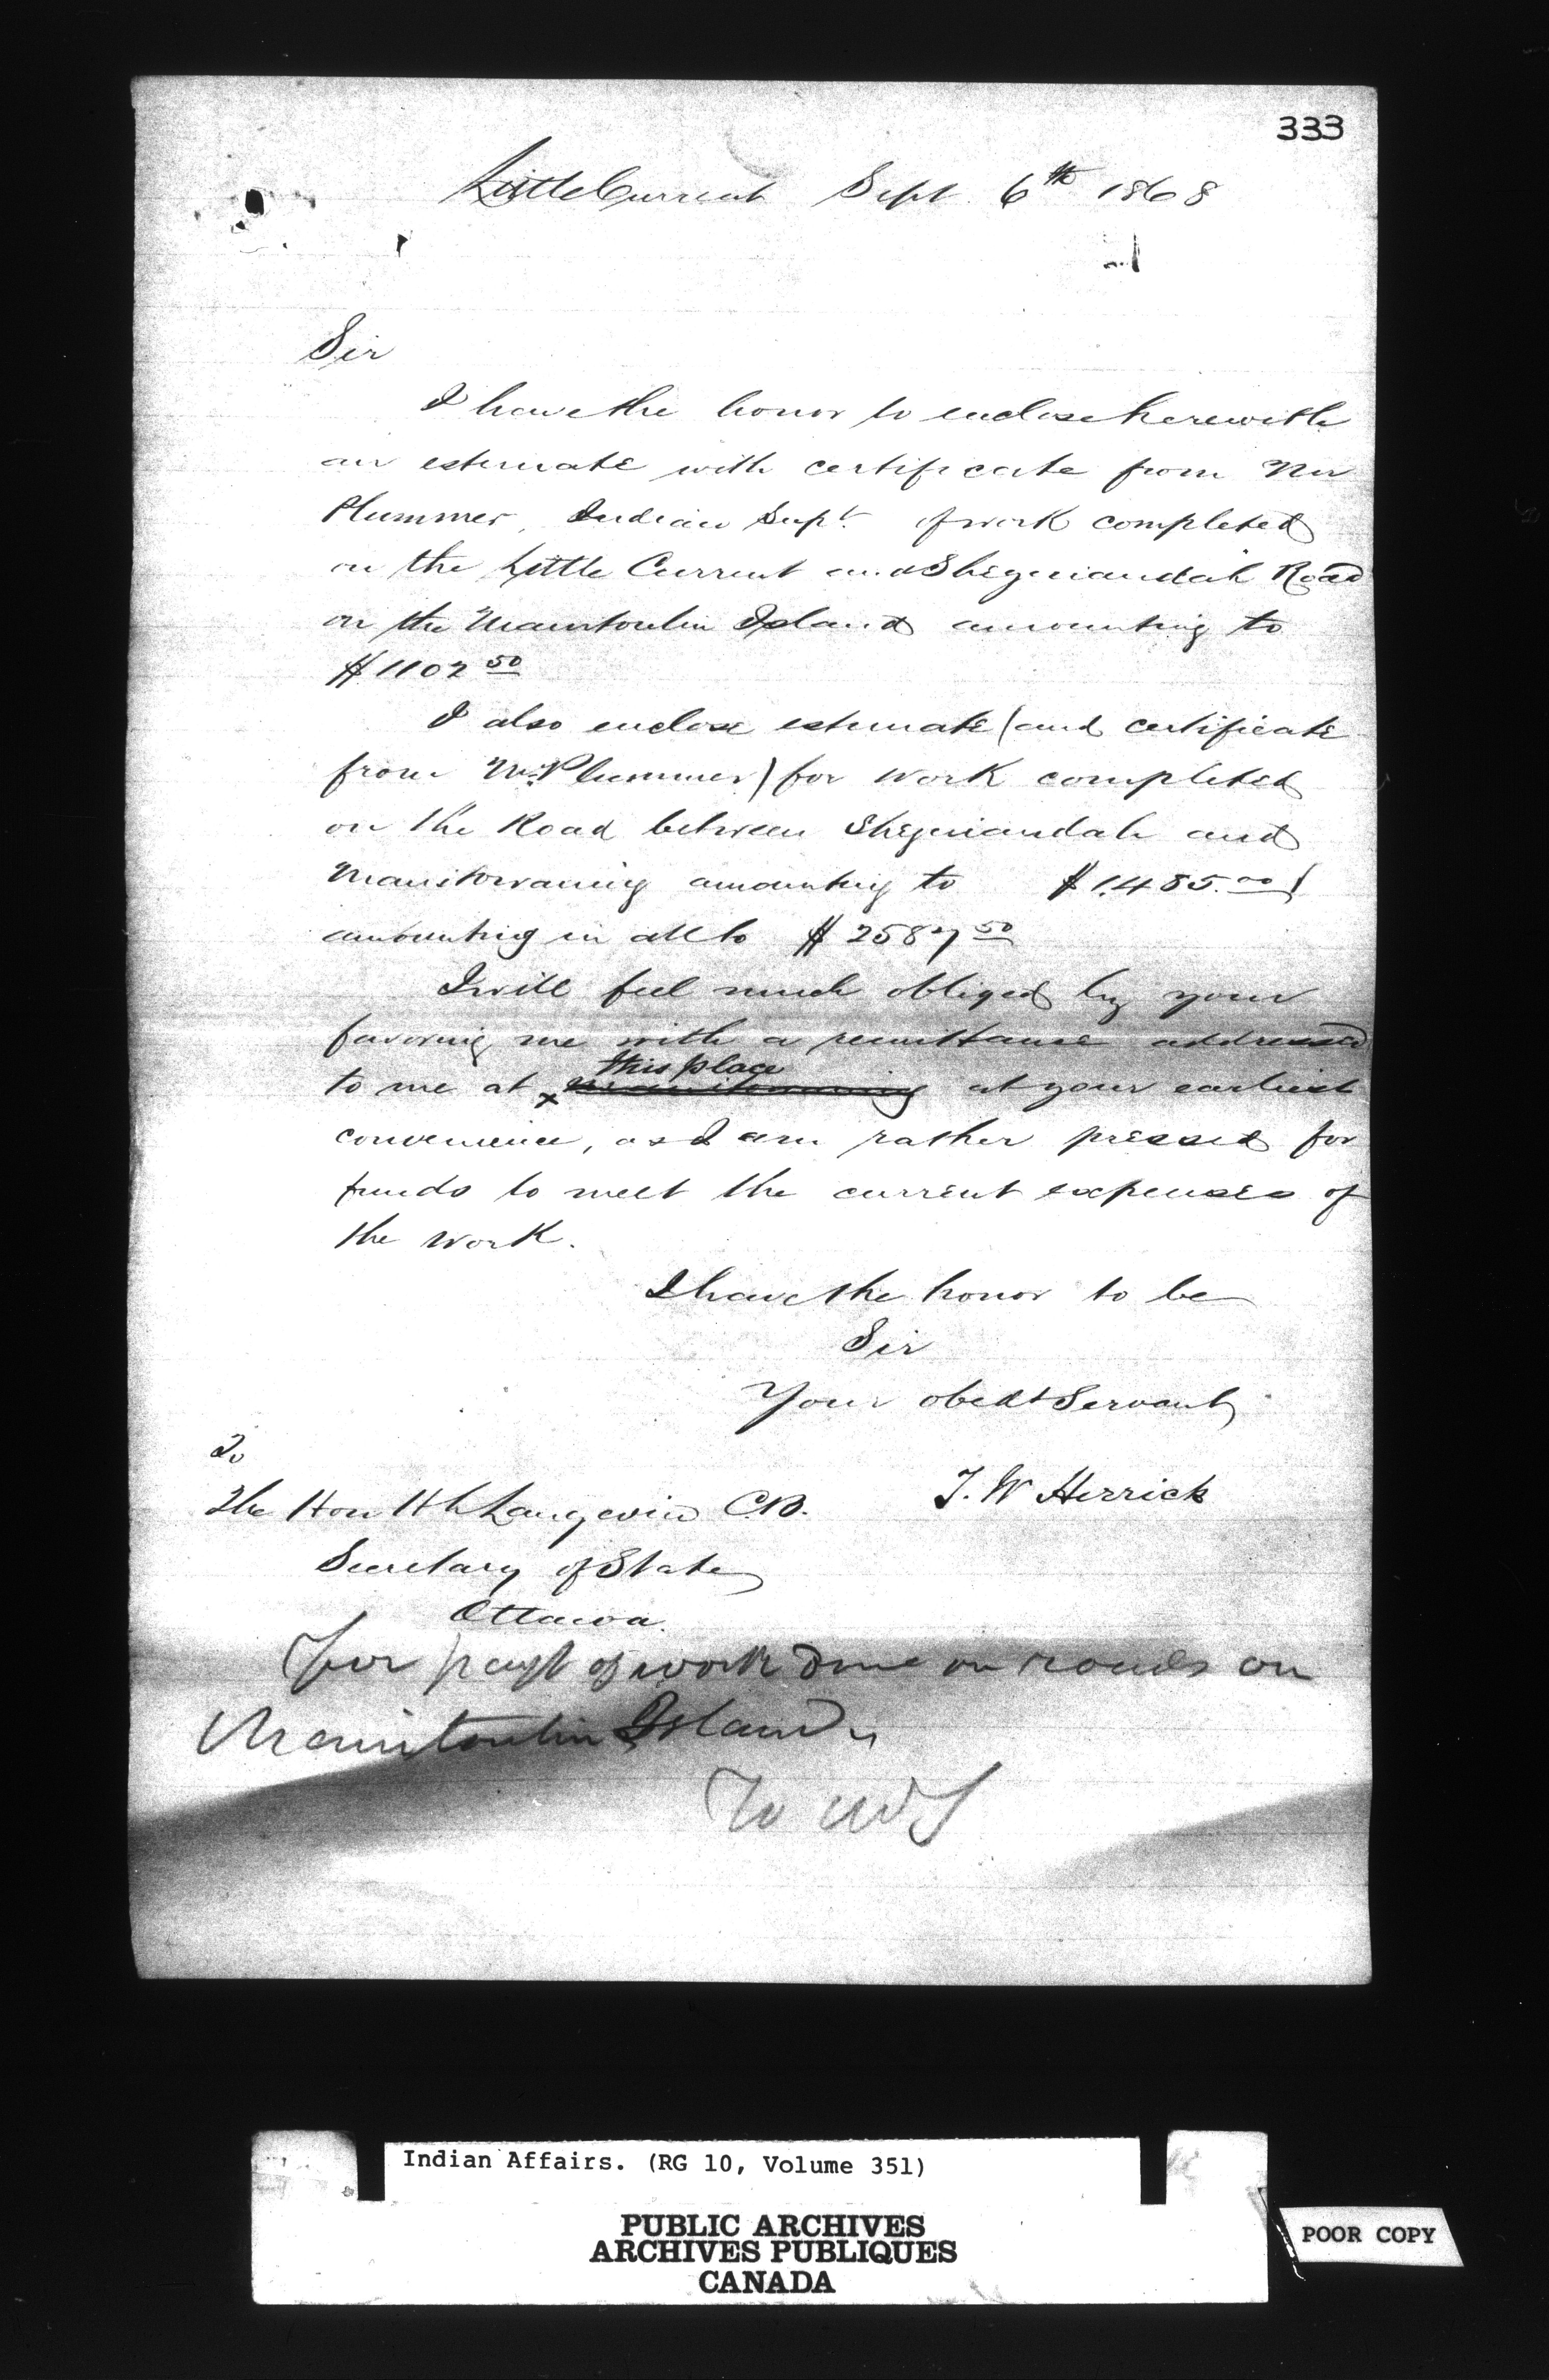 333
Little Current Sept. 6th 1868
Sir
I have the honor to enclose herewith
an estimate with certificate from Mr
Plummer, Indian Supt. of work completed
on the Little Current and Shegniandah Road
on the Manitoulin Island amounting to
$1102 50
I also enclose estimate (and certificate
from Mr. Plummer) for work completed
on the Road between Shegniandah and
Manitowaning amounting to $1,485.00
amounting in all to $2587 50
I will feel much obliged by your
favoring me with a remittance addressed
this place
to me at x Manitowaning at your earliest
convenience, as I am rather pressed for
funds to meet the current expenses of
the work.
I have the honor to be
Sir
Your obedt Servant
To
T. W Herrick
The Hon H L Langevin C.B.
Secretary of State
Ottawa.
For payt of work done on roads on
Manitoulin Island
To
Indian Affairs. (RG 10, Volume 351)
PUBLIC ARCHIVES
ARCHIVES PUBLIQUES
CANADA
POOR COPY